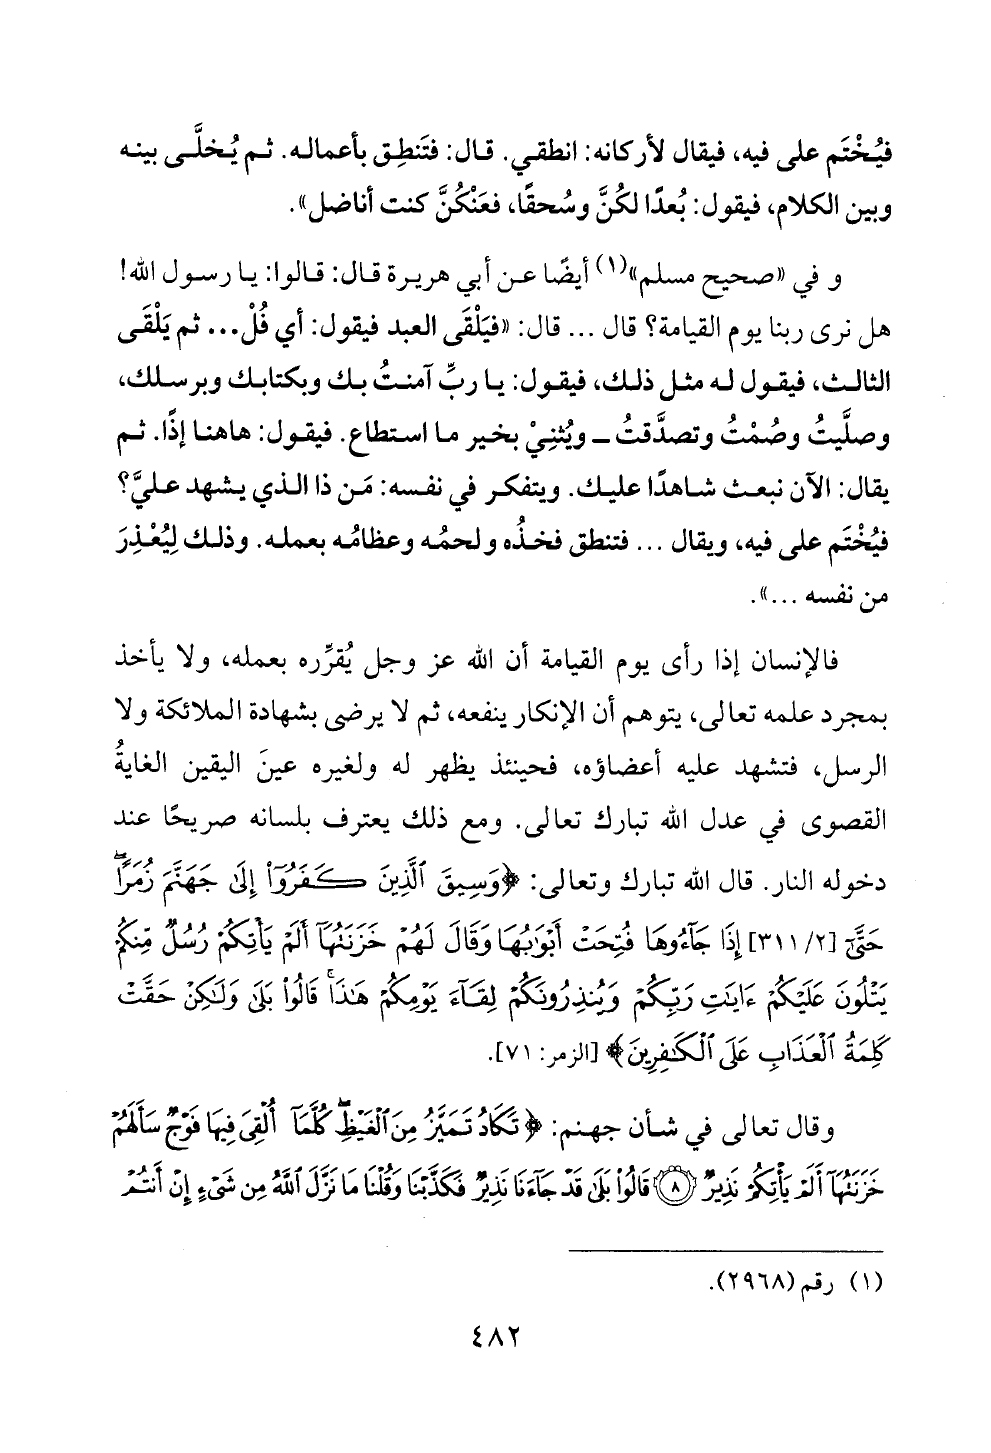 فيُخْتَم على فيه، فيقال لأركانه: انطقي. قال: فتَنطِق بأعماله. ثم يُخلَّى بينه
وبين الكلام، فيقول: بُعدًا لكُنَّ وسُحقًا، فعَنْكُنَّ كنت أناضل».
و في «صحيح مسلم»(١) أيضًا عن أبي هريرة قال: قالوا: يا رسول الله!
هل نرى ربنا يوم القيامة؟ قال ... قال: «فيَلْقَى العبد فيقول: أي فُلْ... ثم يَلْقَى
الثالث، فيقول له مثل ذلك، فيقول: يا ربِّ آمنتُ بك وبكتابك وبرسلك،
وصلَّيتُ وصُمْتُ وتصدَّقتُ ــ ويُثنِيْ بخير ما استطاع. فيقول: هاهنا إذًا. ثم
يقال: الآن نبعث شاهدًا عليك. ويتفكر في نفسه: مَن ذا الذي يشهد عليَّ؟
فيُخْتَم على فيه، ويقال ... فتنطق فخذُه ولحمُه وعظامُه بعمله. وذلك لِيُعْذِرَ
من نفسه ...».
فالإنسان إذا رأى يوم القيامة أن الله عز وجل يُقرِّره بعمله، ولا يأخذ
بمجرد علمه تعالى، يتوهم أن الإنكار ينفعه، ثم لا يرضى بشهادة الملائكة ولا
الرسل، فتشهد عليه أعضاؤه، فحينئذ يظهر له ولغيره عينَ اليقين الغايةُ
القصوى في عدل الله تبارك تعالى. ومع ذلك يعترف بلسانه صريحًا عند
دخوله النار. قال الله تبارك وتعالى: ﴿وَسِيقَ ٱلَّذِينَ كَفَرُوٓا۟ إِلَىٰ جَهَنَّمَ زُمَرًا ۖ
حَتَّىٰٓ [٢/ ٣١١] إِذَا جَآءُوهَا فُتِحَتْ أَبْوَٰبُهَا وَقَالَ لَهُمْ خَزَنَتُهَآ أَلَمْ يَأْتِكُمْ رُسُلٌ مِّنكُمْ
يَتْلُونَ عَلَيْكُمْ ءَايَٰتِ رَبِّكُمْ وَيُنذِرُونَكُمْ لِقَآءَ يَوْمِكُمْ هَٰذَا ۚ قَالُوا۟ بَلَىٰ وَلَٰكِنْ حَقَّتْ
كَلِمَةُ ٱلْعَذَابِ عَلَى ٱلْكَٰفِرِينَ﴾ [الزمر: ٧١].
وقال تعالى في شأن جهنم: ﴿تَكَادُ تَمَيَّزُ مِنَ ٱلْغَيْظِ ۖ كُلَّمَآ أُلْقِىَ فِيهَا فَوْجٌ سَأَلَهُمْ
خَزَنَتُهَآ أَلَمْ يَأْتِكُمْ نَذِيرٌ ٨ قَالُوا۟ بَلَىٰ قَدْ جَآءَنَا نَذِيرٌ فَكَذَّبْنَا وَقُلْنَا مَا نَزَّلَ ٱللَّهُ مِن شَىْءٍ إِنْ أَنتُمْ
(١) رقم (٢٩٦٨).
٤٨٢